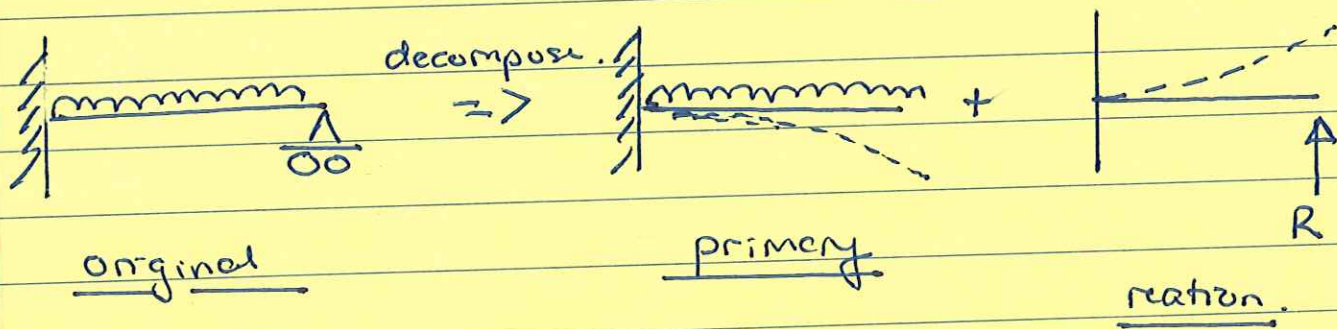 decompose.
=>
+
R
original
primary
reation.